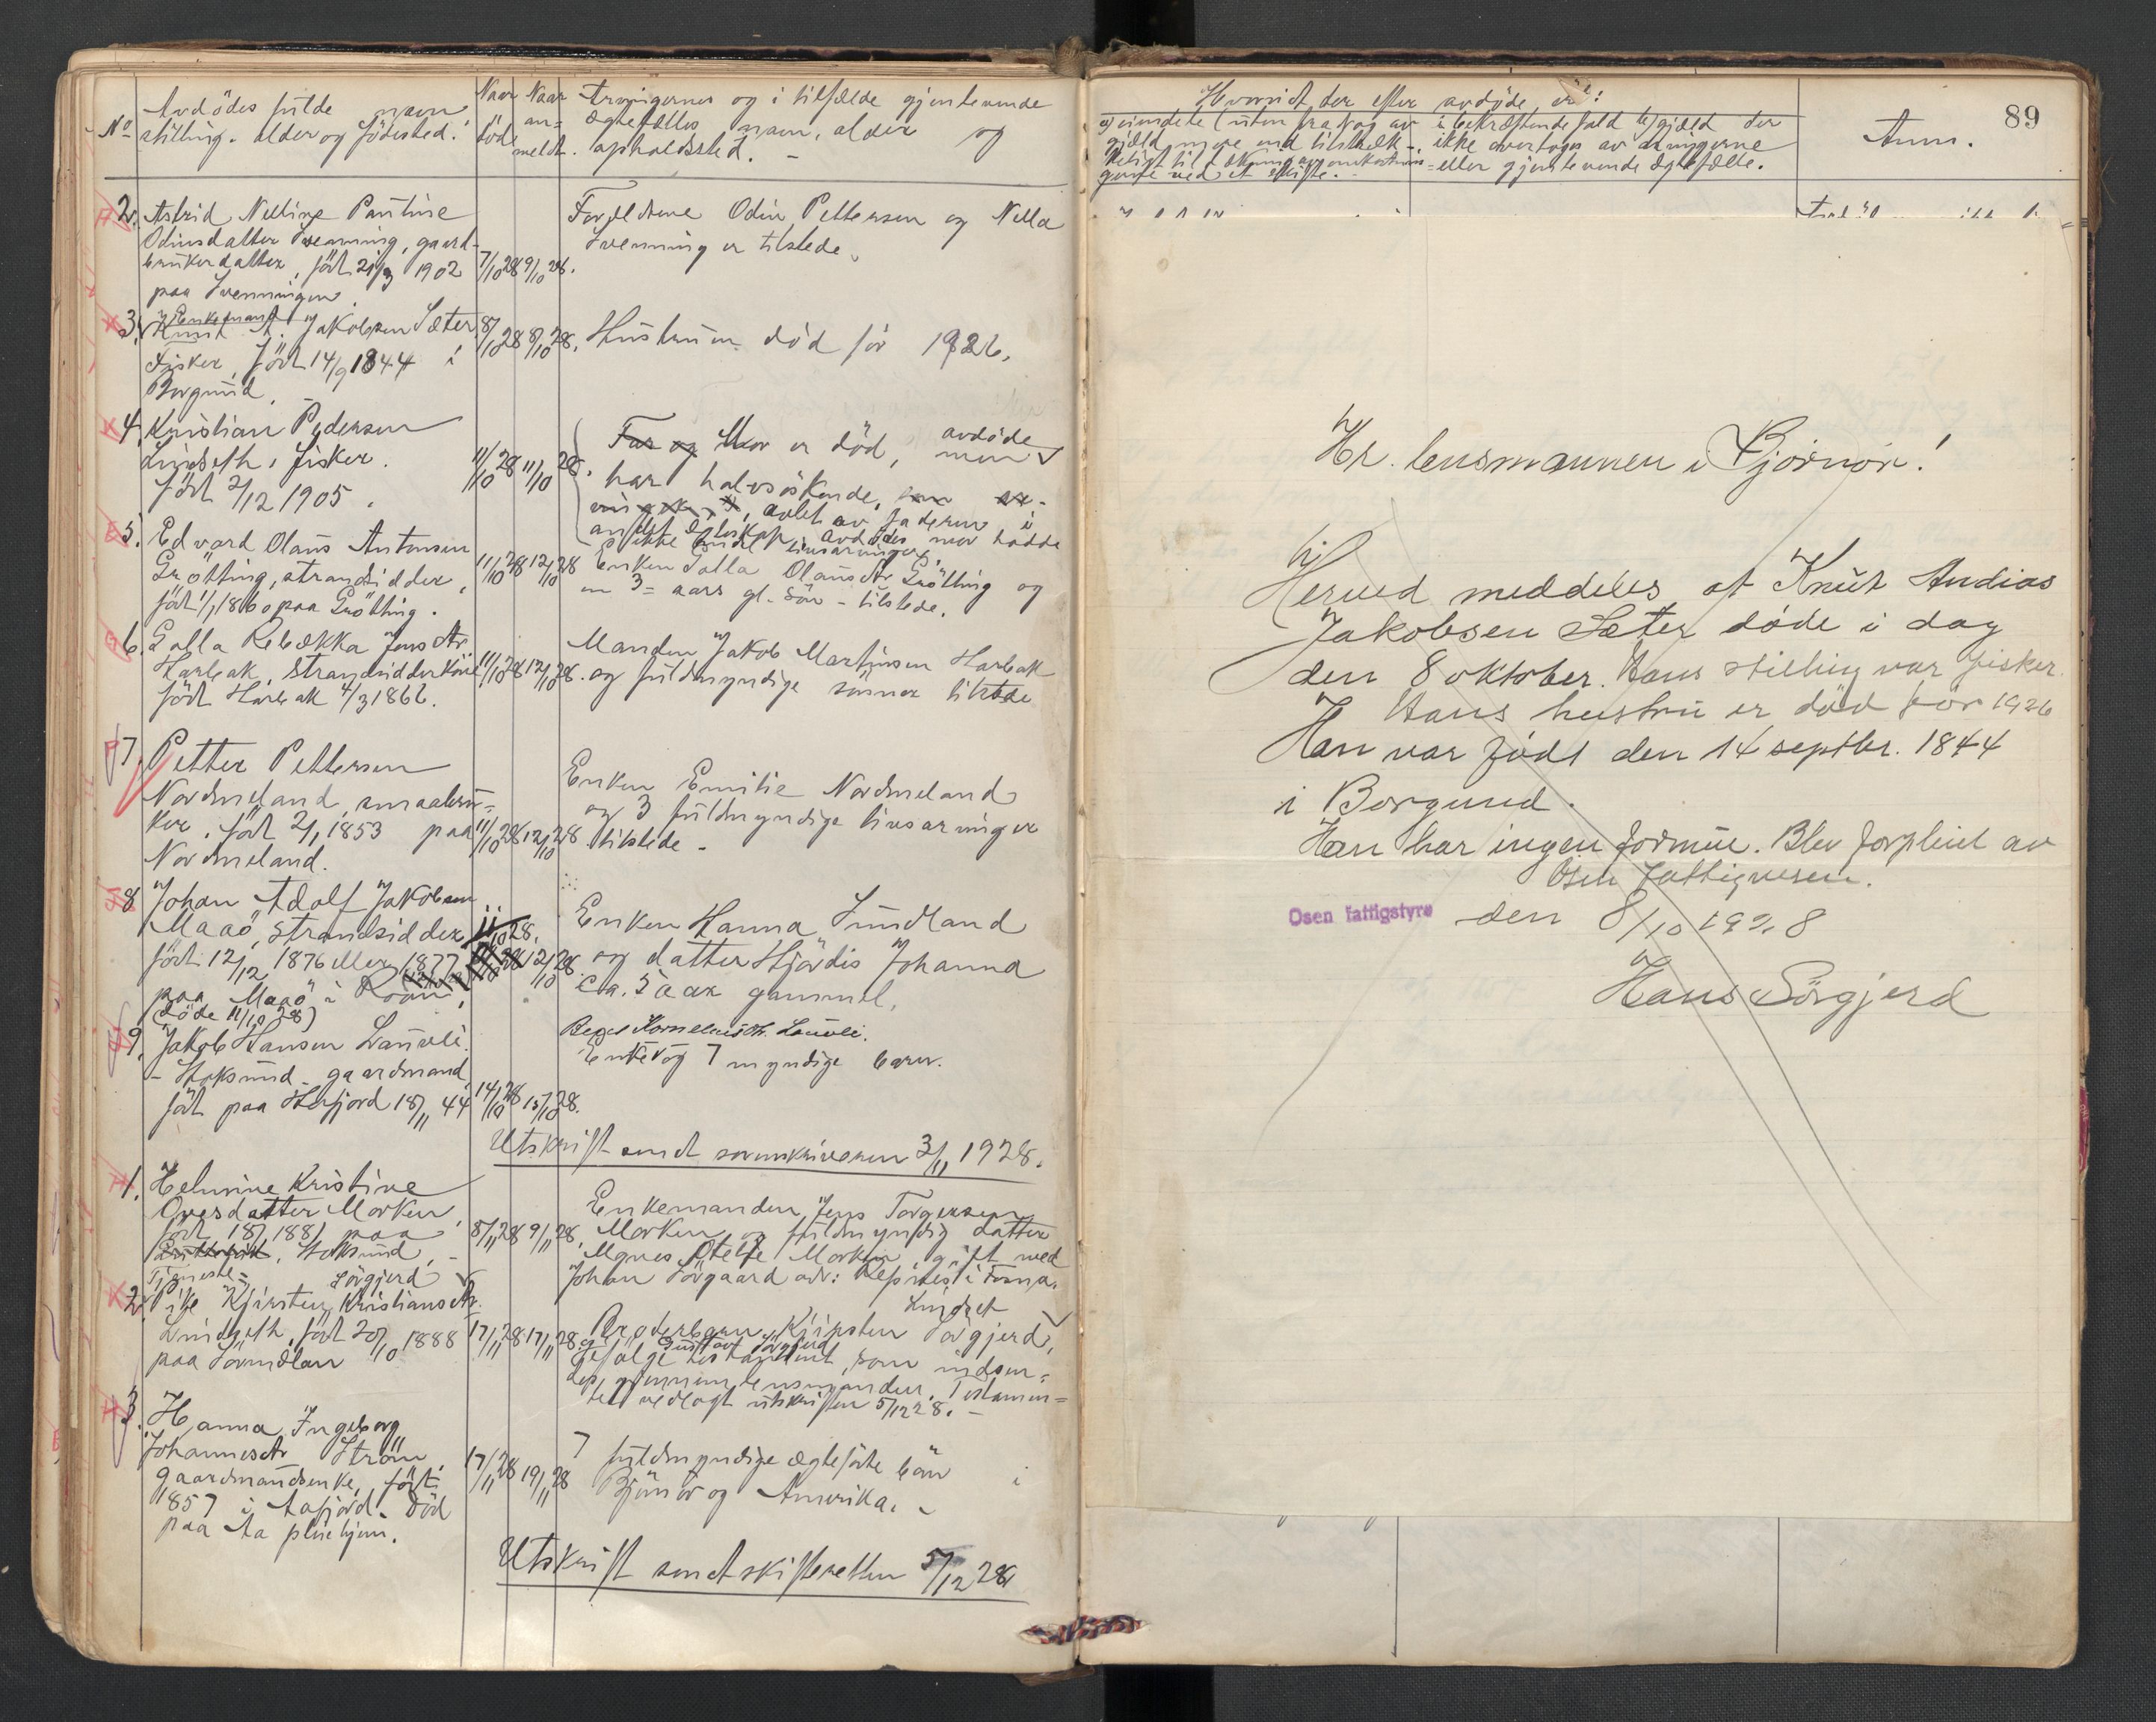 No
Avdödes fulde navn
stilling. alder og födested.
Naar
döde
Naar
an-
meldt.
Arvingernes og i tilfælde gjenlevende
ægtefælles navn, alder og
opholdssted. -
2. Astrid Nelline Pauline
Odinsdatter Svenning, gaard-
brukerdatter, födt 21/3 1902
paa Svenningen.
7/10 28 9/10 28.
Forældrene Odin Pettersen og Nella
Svenning er tilstede.
3. Enkemand
Knut A. Jakobsen Sæter
Fisker, födt 14/9 1844 i
Borgund.
8/10 28 8/10 28.
Hustruen död för 1926.
4. Kristian Pedersen
Lindseth, fisker.
födt 2/12 1905.
11/10 28 11/10 28.
Far og Mor er död, men avdöde
har halvsöskende,
avlet av faderen i
andet ægteskap. Avdödes mor hadde
ikke andre livsarvinger.
5. Edvard Olaus Antonsen
Grötting, strandsidder,
födt 1/1 1860 paa Grötting.
11/10 28 12/10 28
Enken Golla Olausdtr Grötting og
en 3= aars gl. sön - tilstede.
6. Golla Rebekka Jensdtr
Harbak, strandsidderkone
födt Harbak 4/3 1862.
11/10 28 12/10 28.
Manden Jakob Martinsen Harbak
og fuldmyndige sönner tilstede
7. Petter Pettersen
Nordmeland, smaabru=
ker. födt 2/1 1853 paa
Nordmeland.
11/10 28 12/10 28
Enken Emilie Nordmeland
og 3 fuldmyndige livsarvinger
tilstede -
8 Johan Adolf Jakobsen
Maaö, strandsidder
födt 12/12 1876 eller 1877
paa Maaö i Roan,
(döde 11/10 28)
11/10 28.
12/10 28.
Enken Hanna Sundland
og datter Hjördis Johanna
ca. 5 aar gammel.
9. Jakob Hansen Lauvli
- Stoksund - gaardmand
födt paa Herfjord 18/11 44
14/10 28 15/10 28.
Kornelius Lauvli.
Enke og 7 myndige barn.
Utskrift sendt sorenskriveren 3/11 1928.
1. Helmine Kristine
Ovesdatter Morken,
födt 18/7 1881 paa
Stoksund, -
8/11 28 9/11 28.
Enkemanden Jens Torgersen
Morken og fuldmyndig datter
Agnes Otelie Morken gift med
Johan Sörgaard adr: Repnes i Fosna.
2. Tjeneste=
pike Kjirsten Kristiansdtr. Sörgjerd
Lindseth, födt 20/10 1888
paa Sörmelan
17/11 28 17/11 28
Broderbarn Kjirsten Lindset Sörgjerd,
og Gustav Sörgjerd
ifölge testament, som indsen=
des gjennem lensmanden. Testamen=
tet vedlagt utskriften 5/12 28. -
3. Hanna Ingeborg
Johannesdtr Ström.
gaardmandsenke, födt
1857 i Aafjord. Död
paa Aa pleiehjem.
17/11 28 19/11 28
7 fuldmyndige ægteföte barn i
Bjönör og Amerika. -
Utskrift sendt skifteretten 5/12 28
Hvorvidt der efter avdöde er:
Anm.
89
Hr. lensmannen i Bjørnør!
Herved meddeles at Knut Andias
Jakobsen Sæter døde i dag
den 8 oktober. Hans stilling var fisker.
Hans hustru er død før 1926
Han var født den 14 septbr. 1844
i Borgund.
Han har ingen formue. Blev forpleiet av
Osen fattigvesen.
Osen fattigstyre den 8/10 1928
Hans Sörgjerd